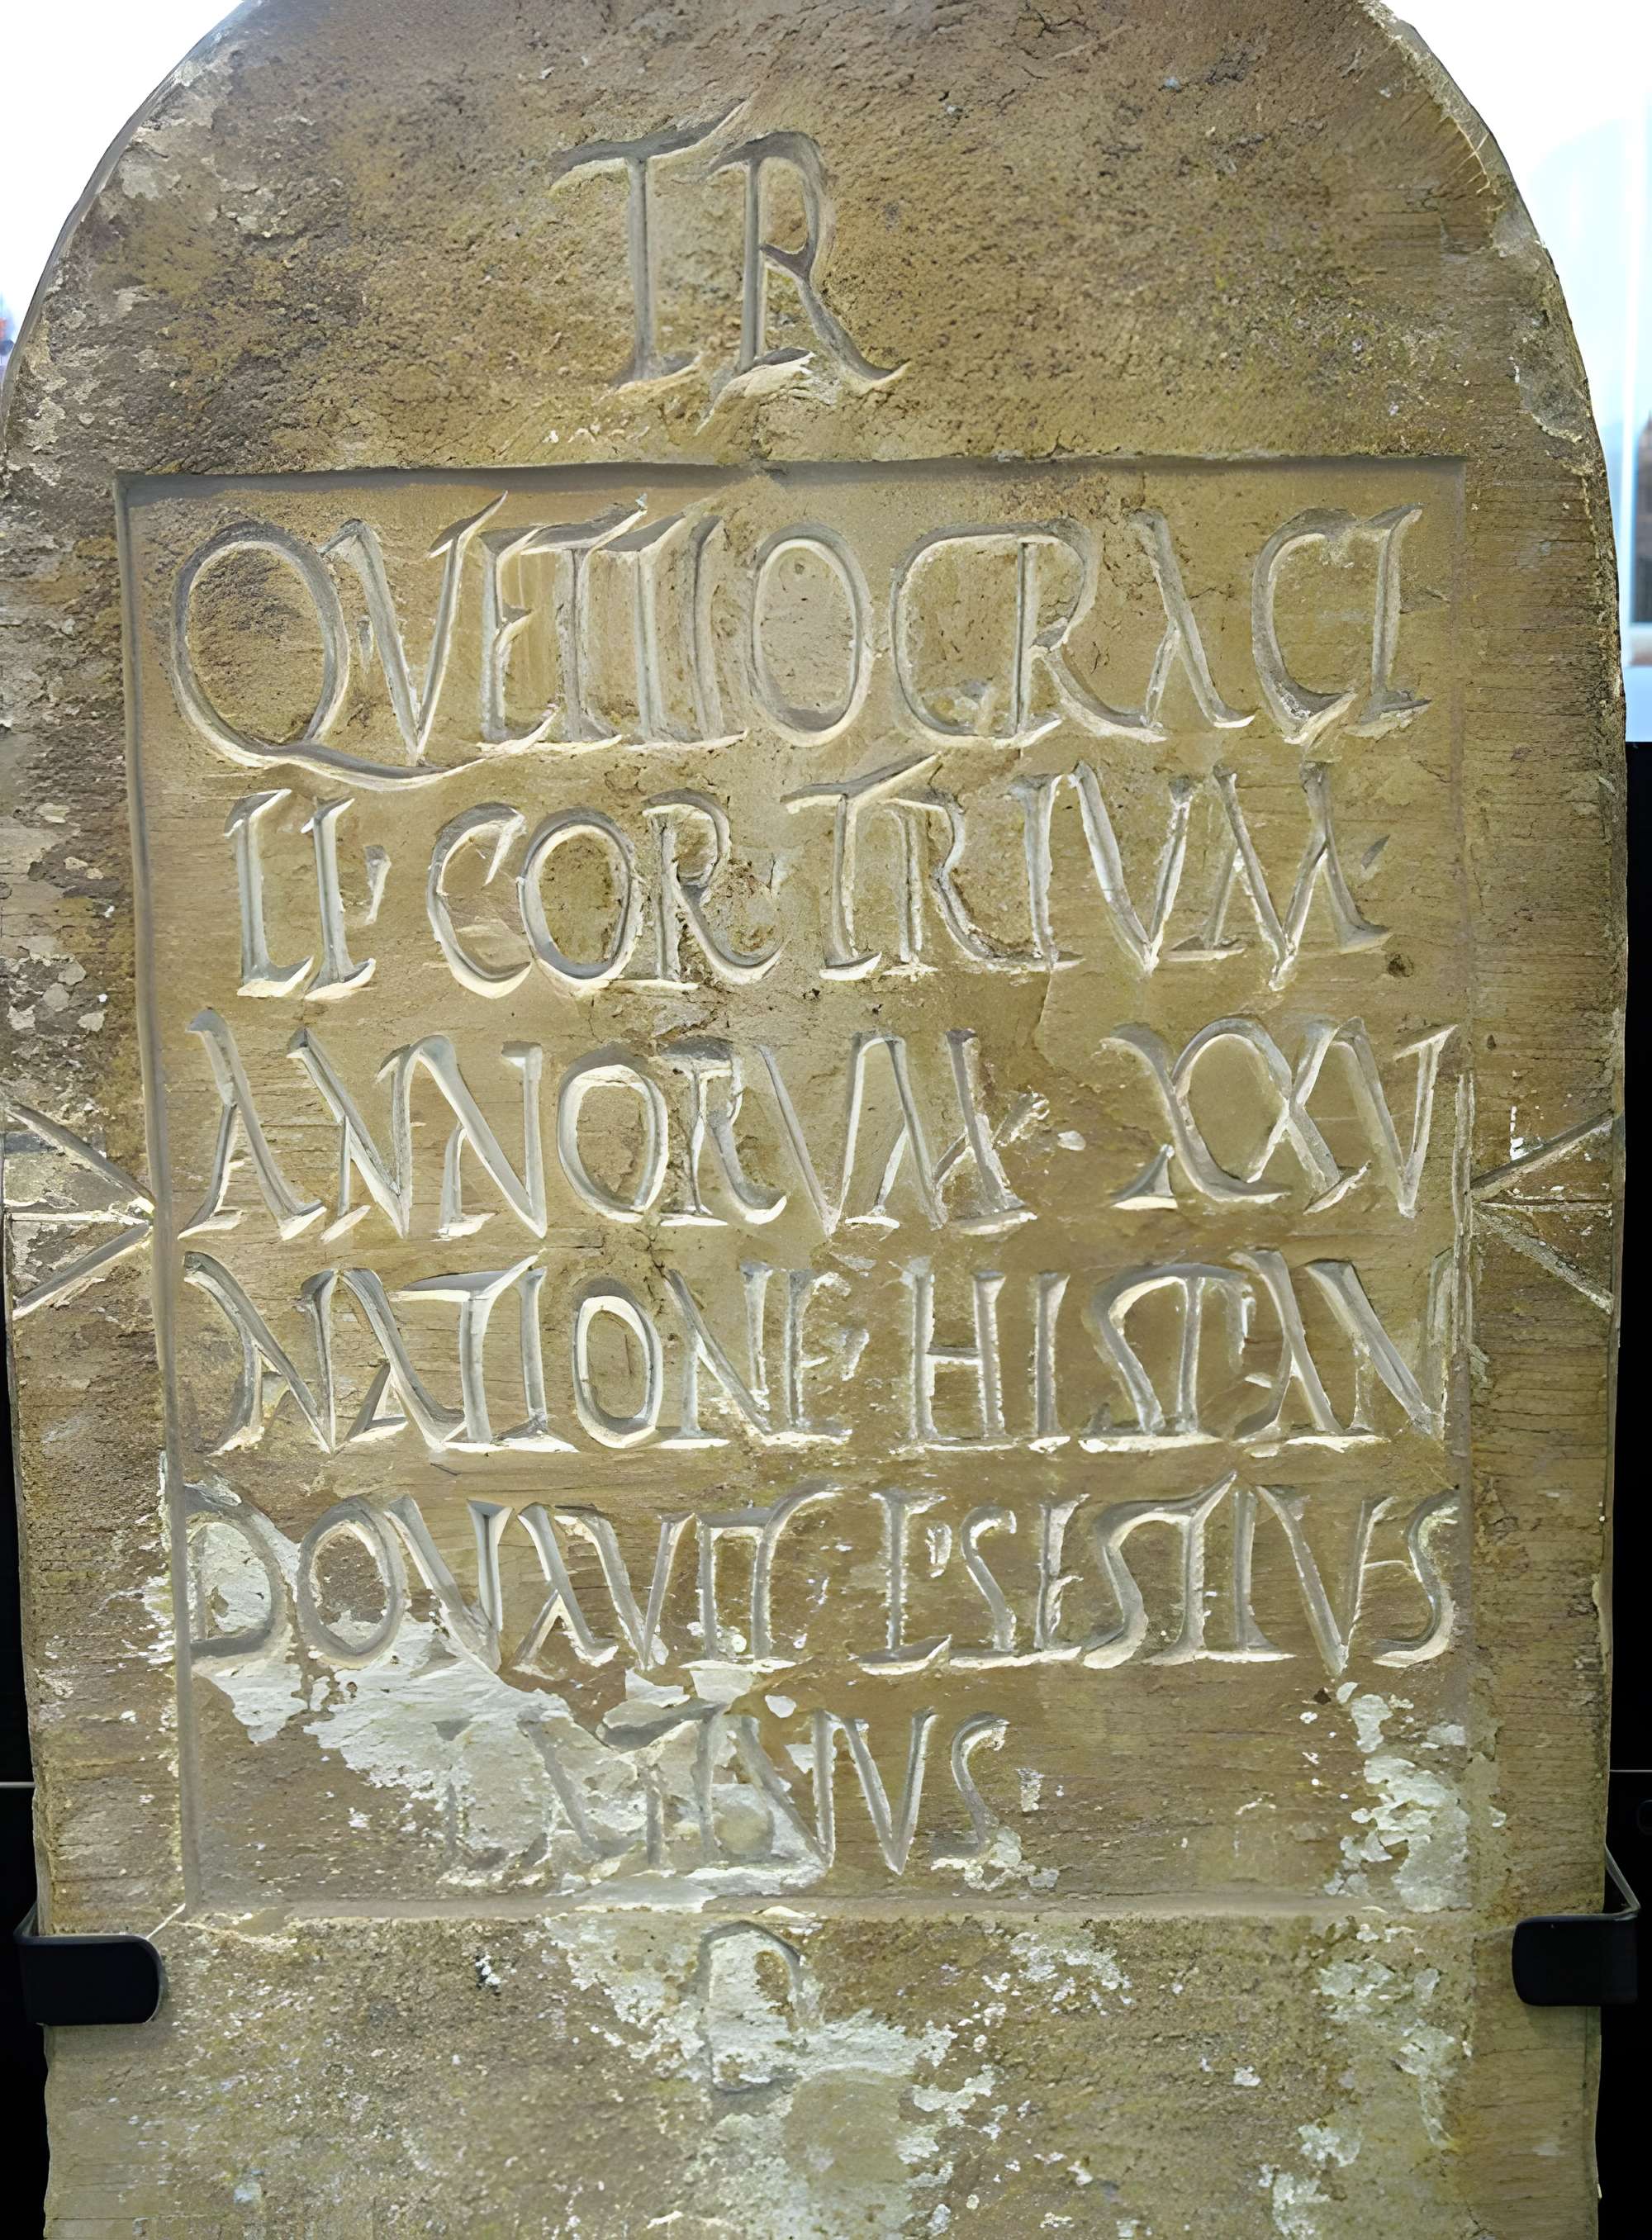 TR
Q VETTIO GRACI
LI · COR TRIVM ·
ANNORVM XXV
NATIONE HISPAN
DONAVIT L · SESTIVS
LATINVS
P